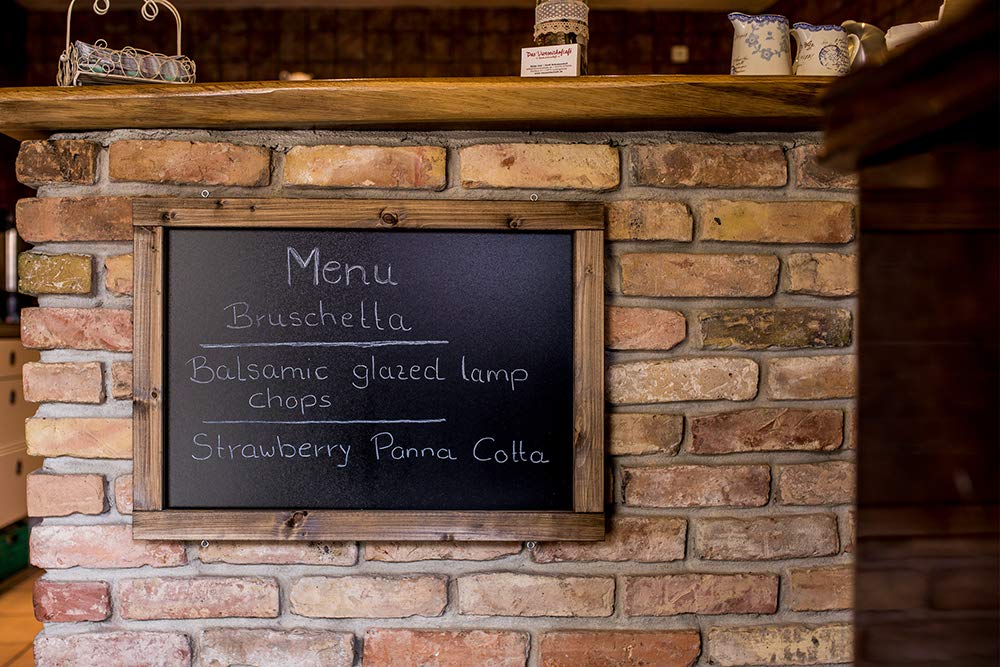 Menu
Bruschetta
Balsamic glazed lamp
chops
Strawberry Panna Cotta